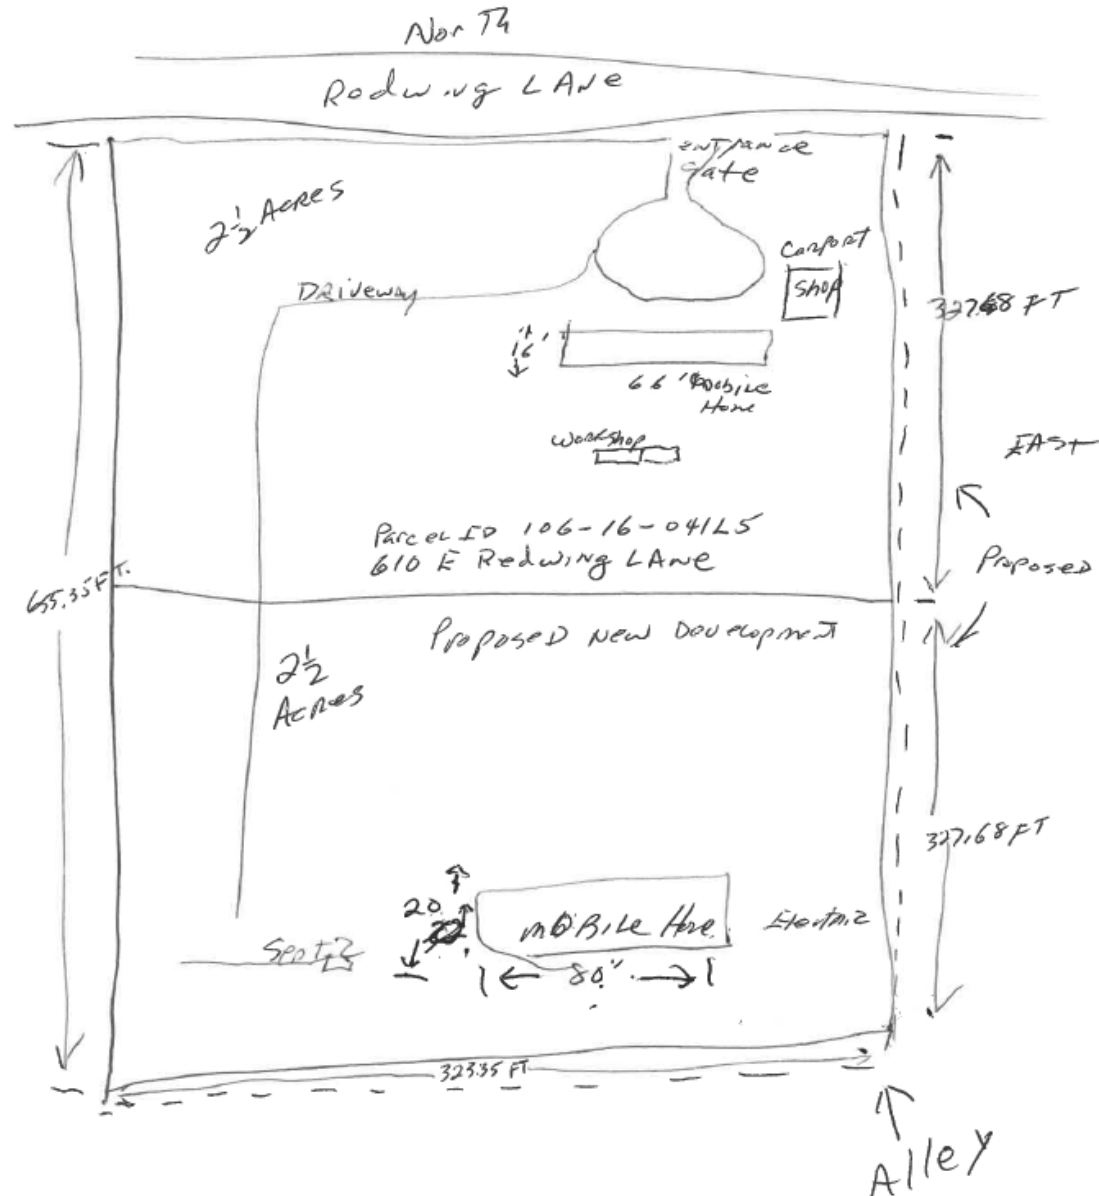 North
Redwing LANe
entrance
gate
2 1/2 ACRES
Carport
Shop
DRiveway
327.68 FT
16'
66' Mobile
Home
WORKShop
EAST
Parcel ID 106-16-041L5
610 E Redwing LANe
Proposed
655.35 FT.
Proposed New Development
2 1/2
ACRes
327.68 FT
20
MOBile Home
Electric
Septic
80'
323.35 FT
Alley